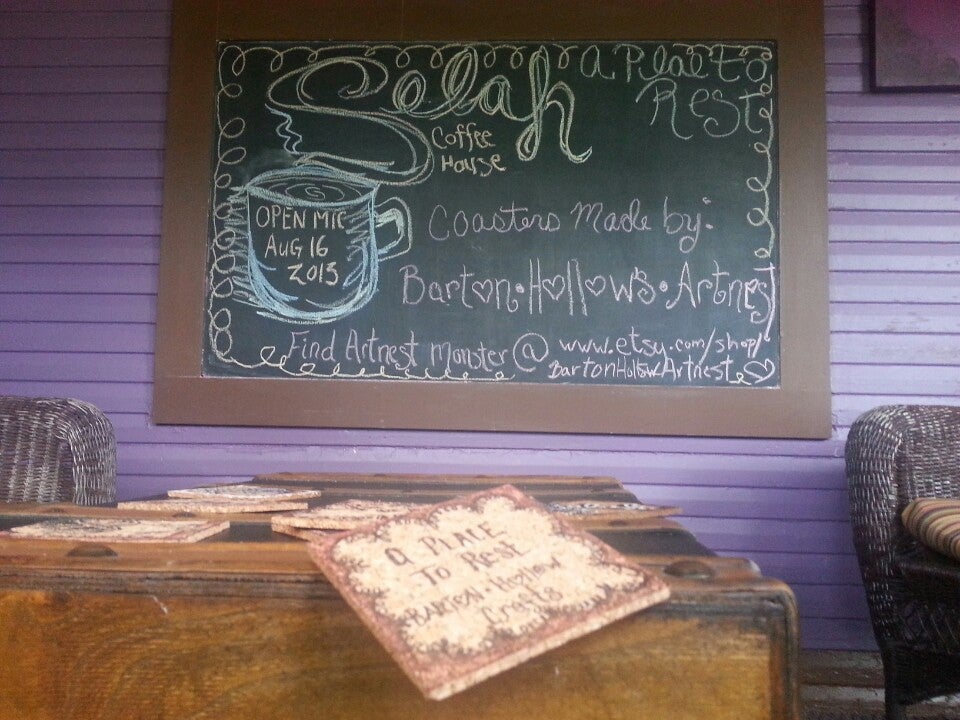 Selah
Coffee
House
a Place to
Rest
OPEN MIC
AUG 16
2013
Coasters Made by:
Barton•Hollow's•Artnest
Find Artnest Monster @ www.etsy.com/shop/
BartonHollowArtnest
a PLACE
TO REST
•BARTON•Hollow
Crests